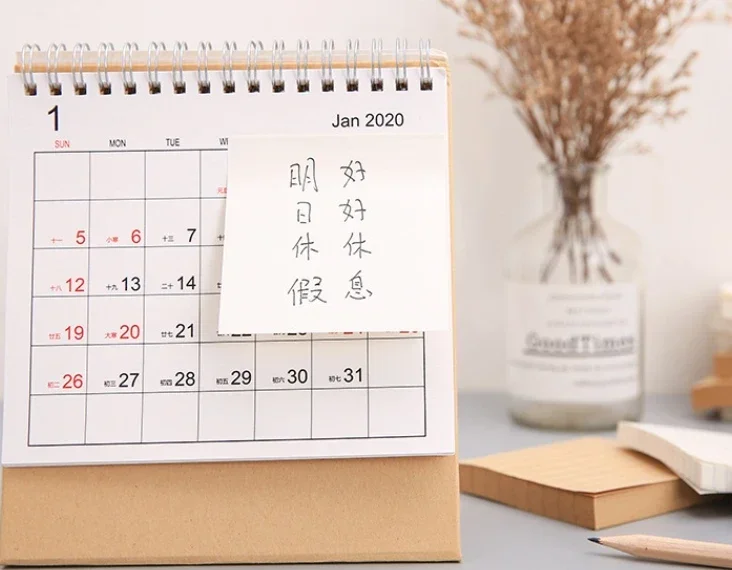 1
Jan 2020
SUN MON TUE
十一 5 小寒 6 十三 7
十八 12 十九 13 二十 14
廿五 19 大寒 20 廿七 21
初二 26 初三 27 初四 28 初五 29 初六 30 初七 31
明日休假
好好休息
GoodTimes